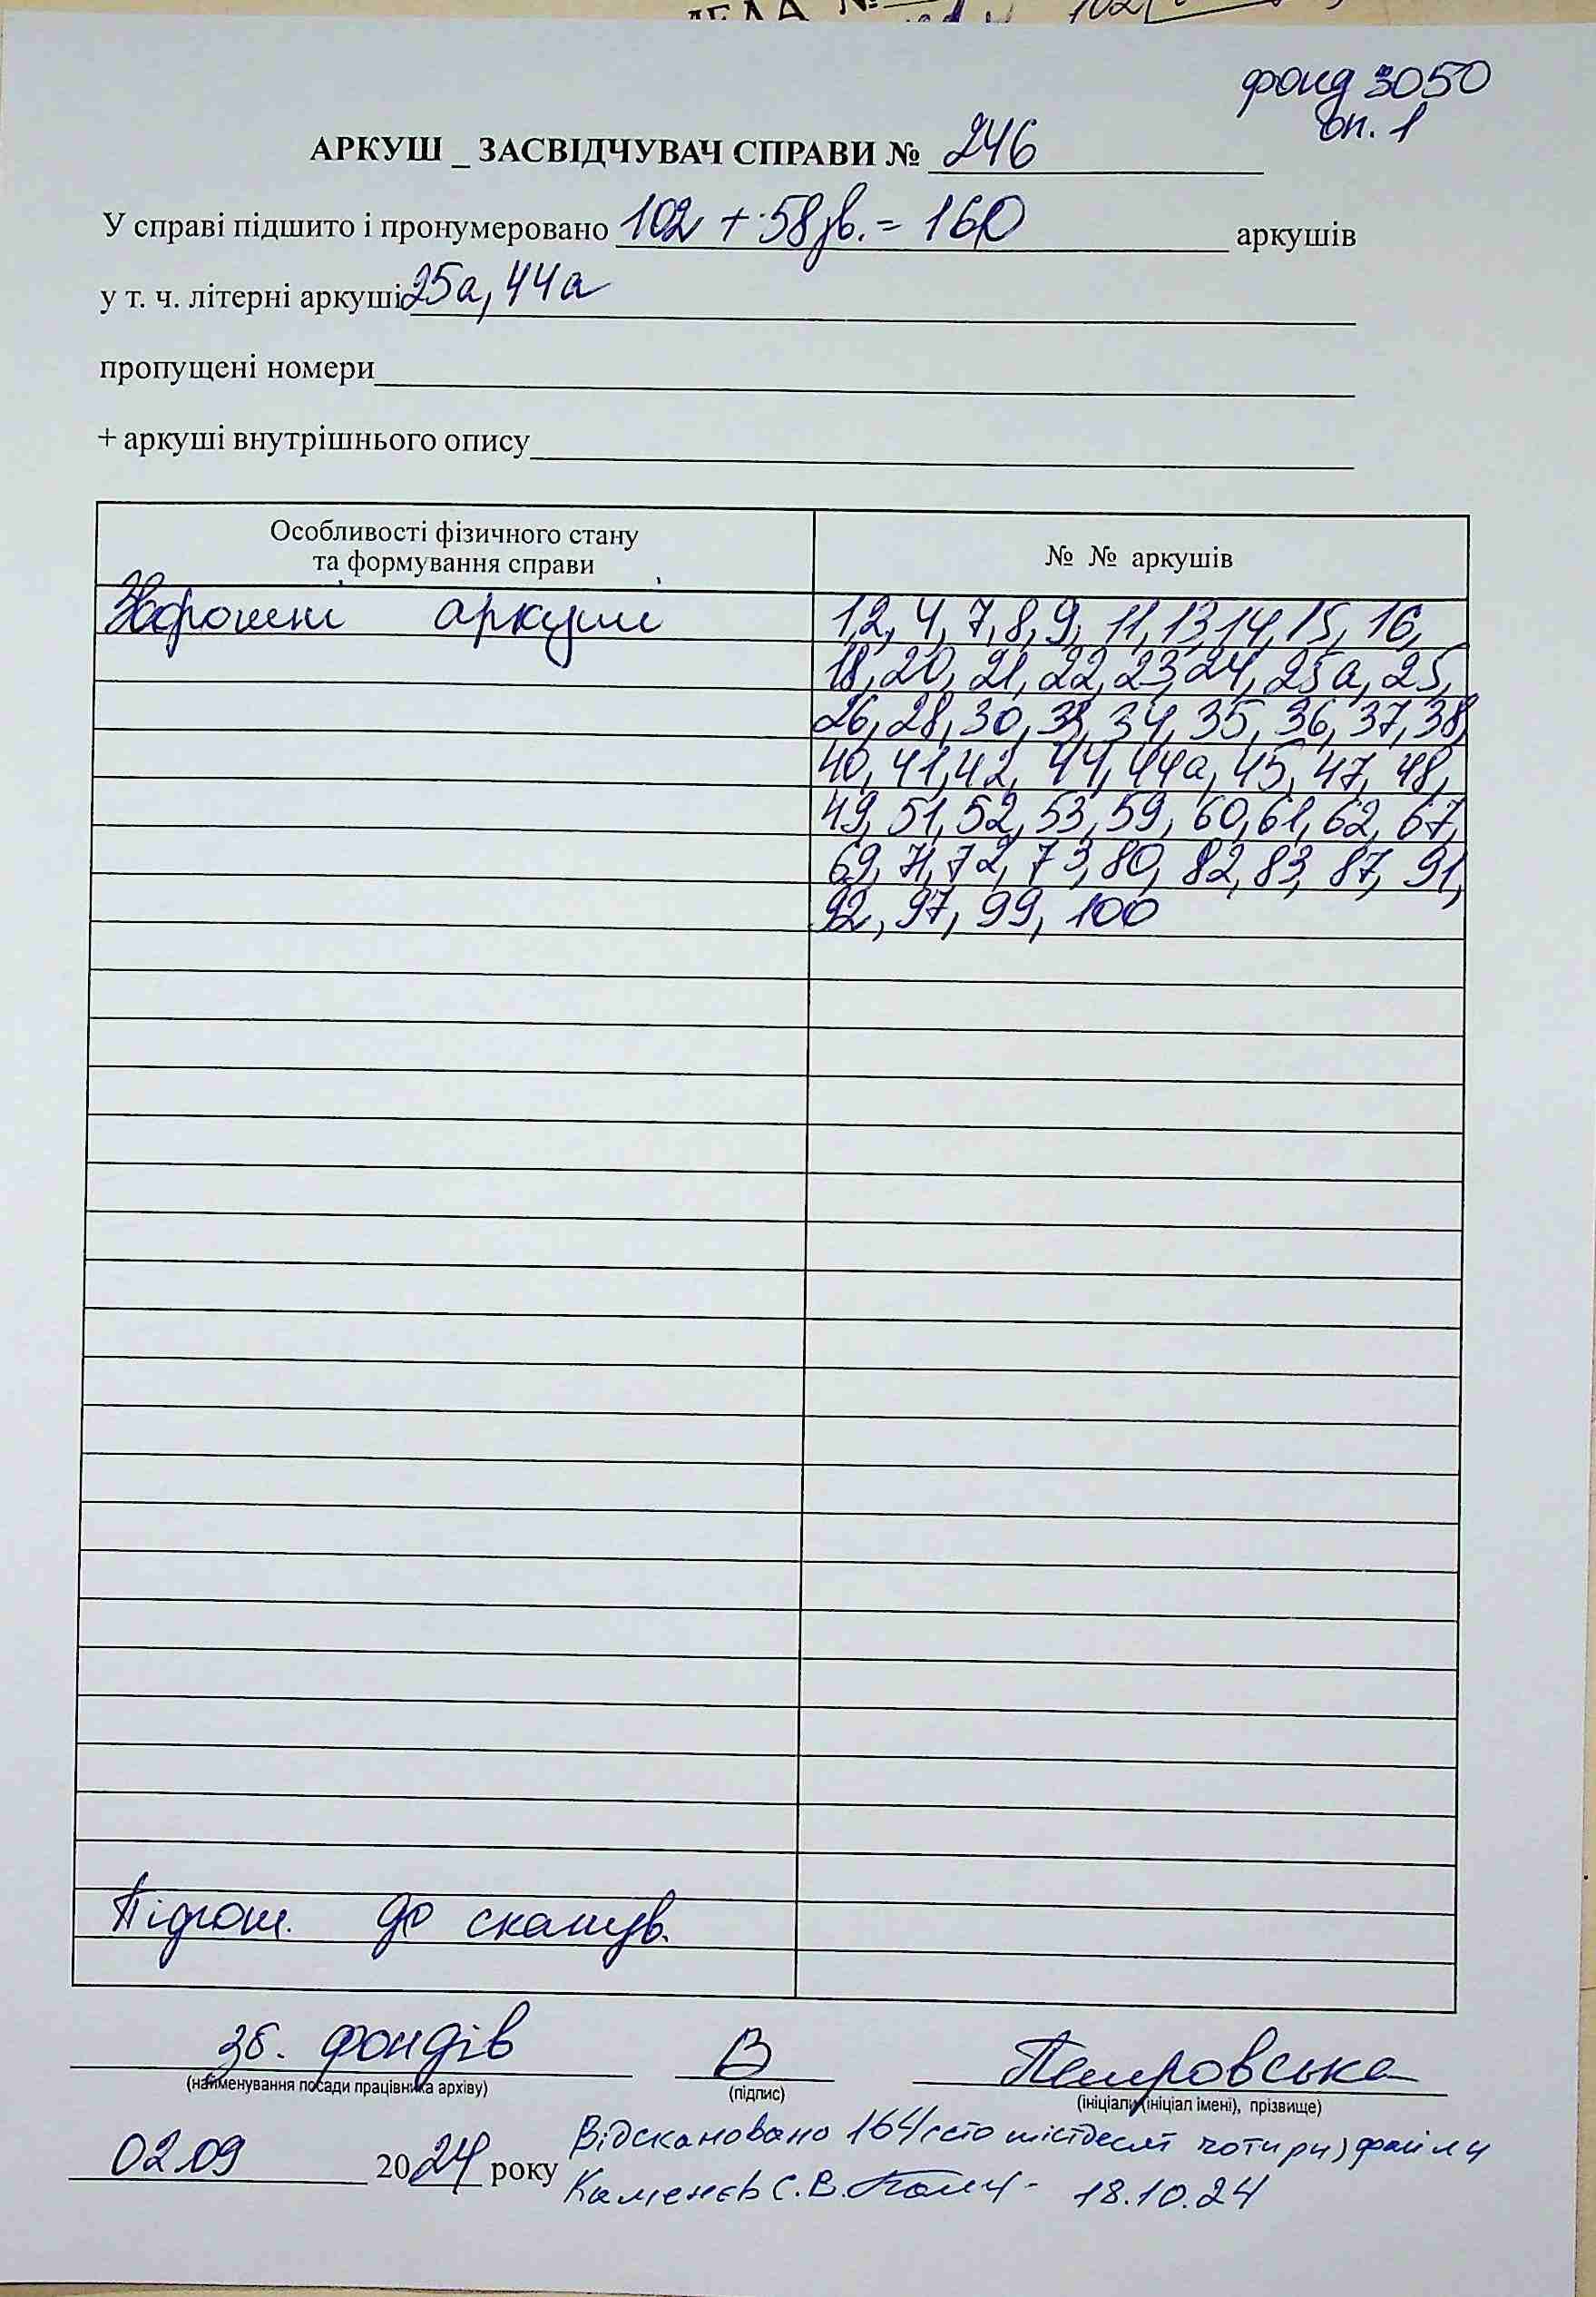 ДЕЛА №
фонд 3050
оп. 1
АРКУШ _ ЗАСВІДЧУВАЧ СПРАВИ № 246
У справі підшито і пронумеровано 102 + 58 зв. = 160 аркушів
у т. ч. літерні аркуші 25а, 44а
пропущені номери
+ аркуші внутрішнього опису
Особливості фізичного стану
та формування справи
№ № аркушів
Зворотні аркуші
1,2, 4, 7, 8, 9, 11, 13,14, 15, 16,
18, 20, 21, 22, 23,24, 25а, 25,
26, 28, 30, 33, 34, 35, 36, 37, 38,
40, 41, 42, 44, 44а, 45, 47, 48,
49, 51, 52, 53, 59, 60, 61, 62, 67,
69, 71, 72, 73, 80, 82, 83, 87, 91,
92, 97, 99, 100
Підгот. до сканув.
зб. фондів
Петровська
(найменування посади працівника архіву)
(підпис)
(ініціали (ініціал імені), прізвище)
02.09 2024 року
Відскановано 164 (сто шістдесят чотири) файли
Каменєв С.В. 18.10.24